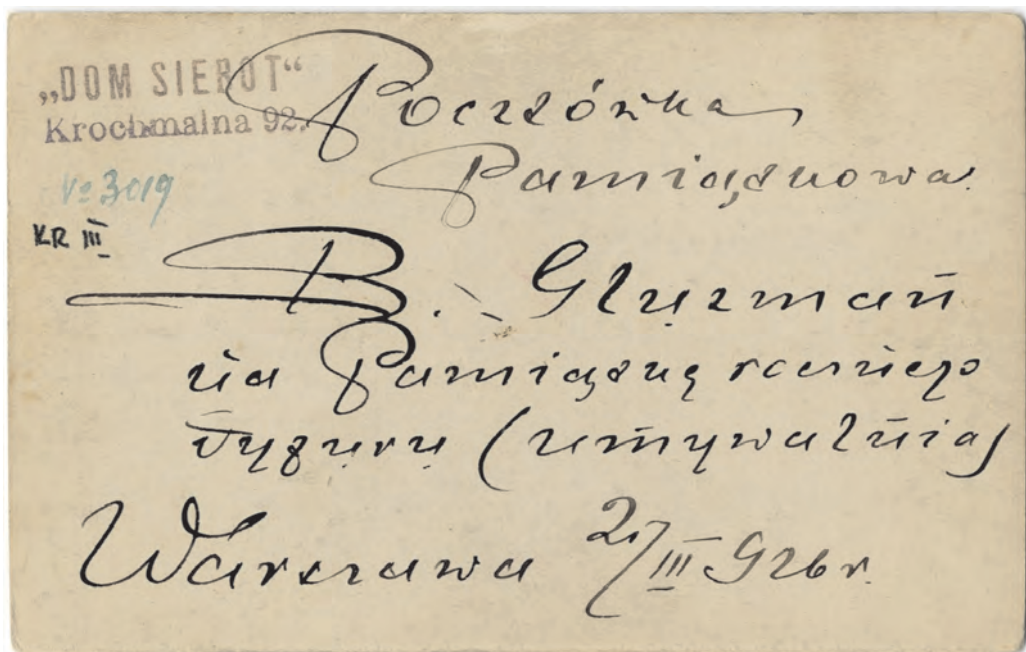 „DOM SIEROT“
Krochmalna 92.
No 3019
KR III
Pocztówka
Pamiątkowa.
B. Gluzman
na Pamiątkę rannego
dyżuru (umywalnia)
Warszawa 2/III 926 r.